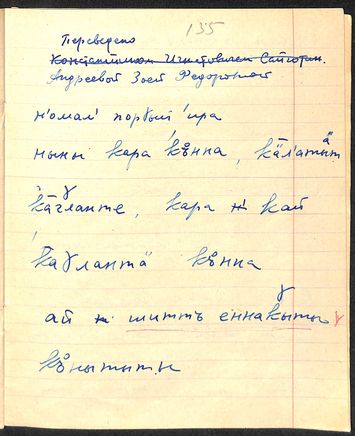 135
Переведено
Константином Игнатовичем Сайготин.
Андреевой Зоей Федоровной
н'омал' порɣый ира
ныны кара къ̊нна, кäлʼатыт
кäɣланте, кара н' кай
каɣлантä къ̊нна
ай н' шиттъ еннакыты
къ̊нытытн